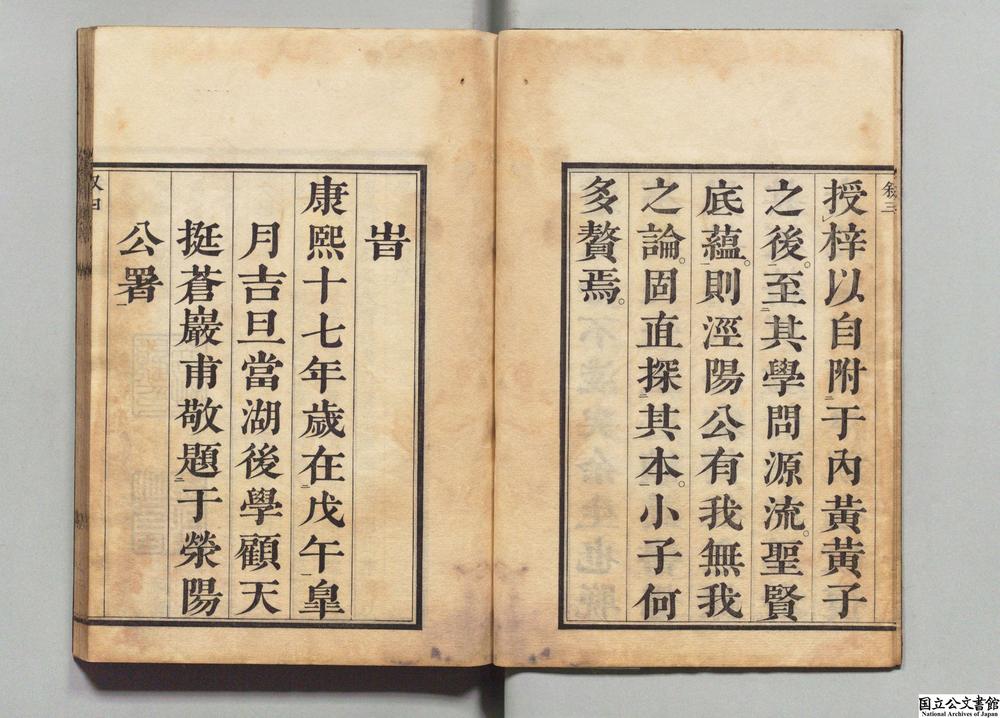 敍三
授梓以自附于內黃黃子
之後。至其學問源流。聖賢
底蘊。則涇陽公有我無我
之論。固直探其本。小子何
多贅焉。
旹
康熙十七年歲在戊午皐
月吉旦當湖後學顧天
挺蒼巖甫敬題于滎陽
公署
国立公文書館
National Archives of Japan